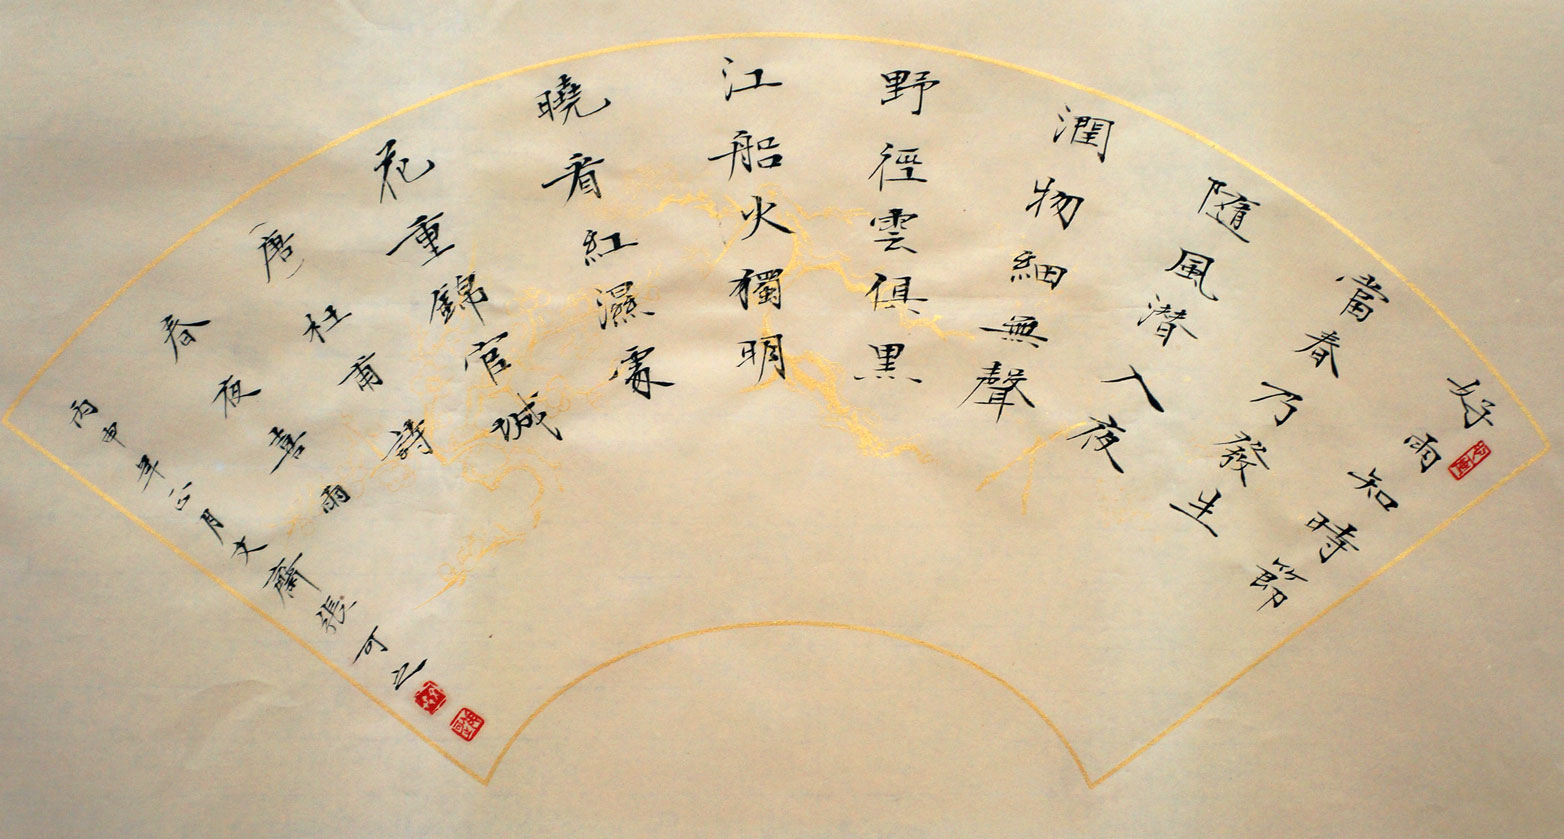 好雨知時節
當春乃發生
隨風潜入夜
潤物細無聲
野徑雲俱黑
江船火獨明
曉看紅濕處
花重錦官城
(唐)杜甫詩
春夜喜雨
丙申年正月文齋張可之